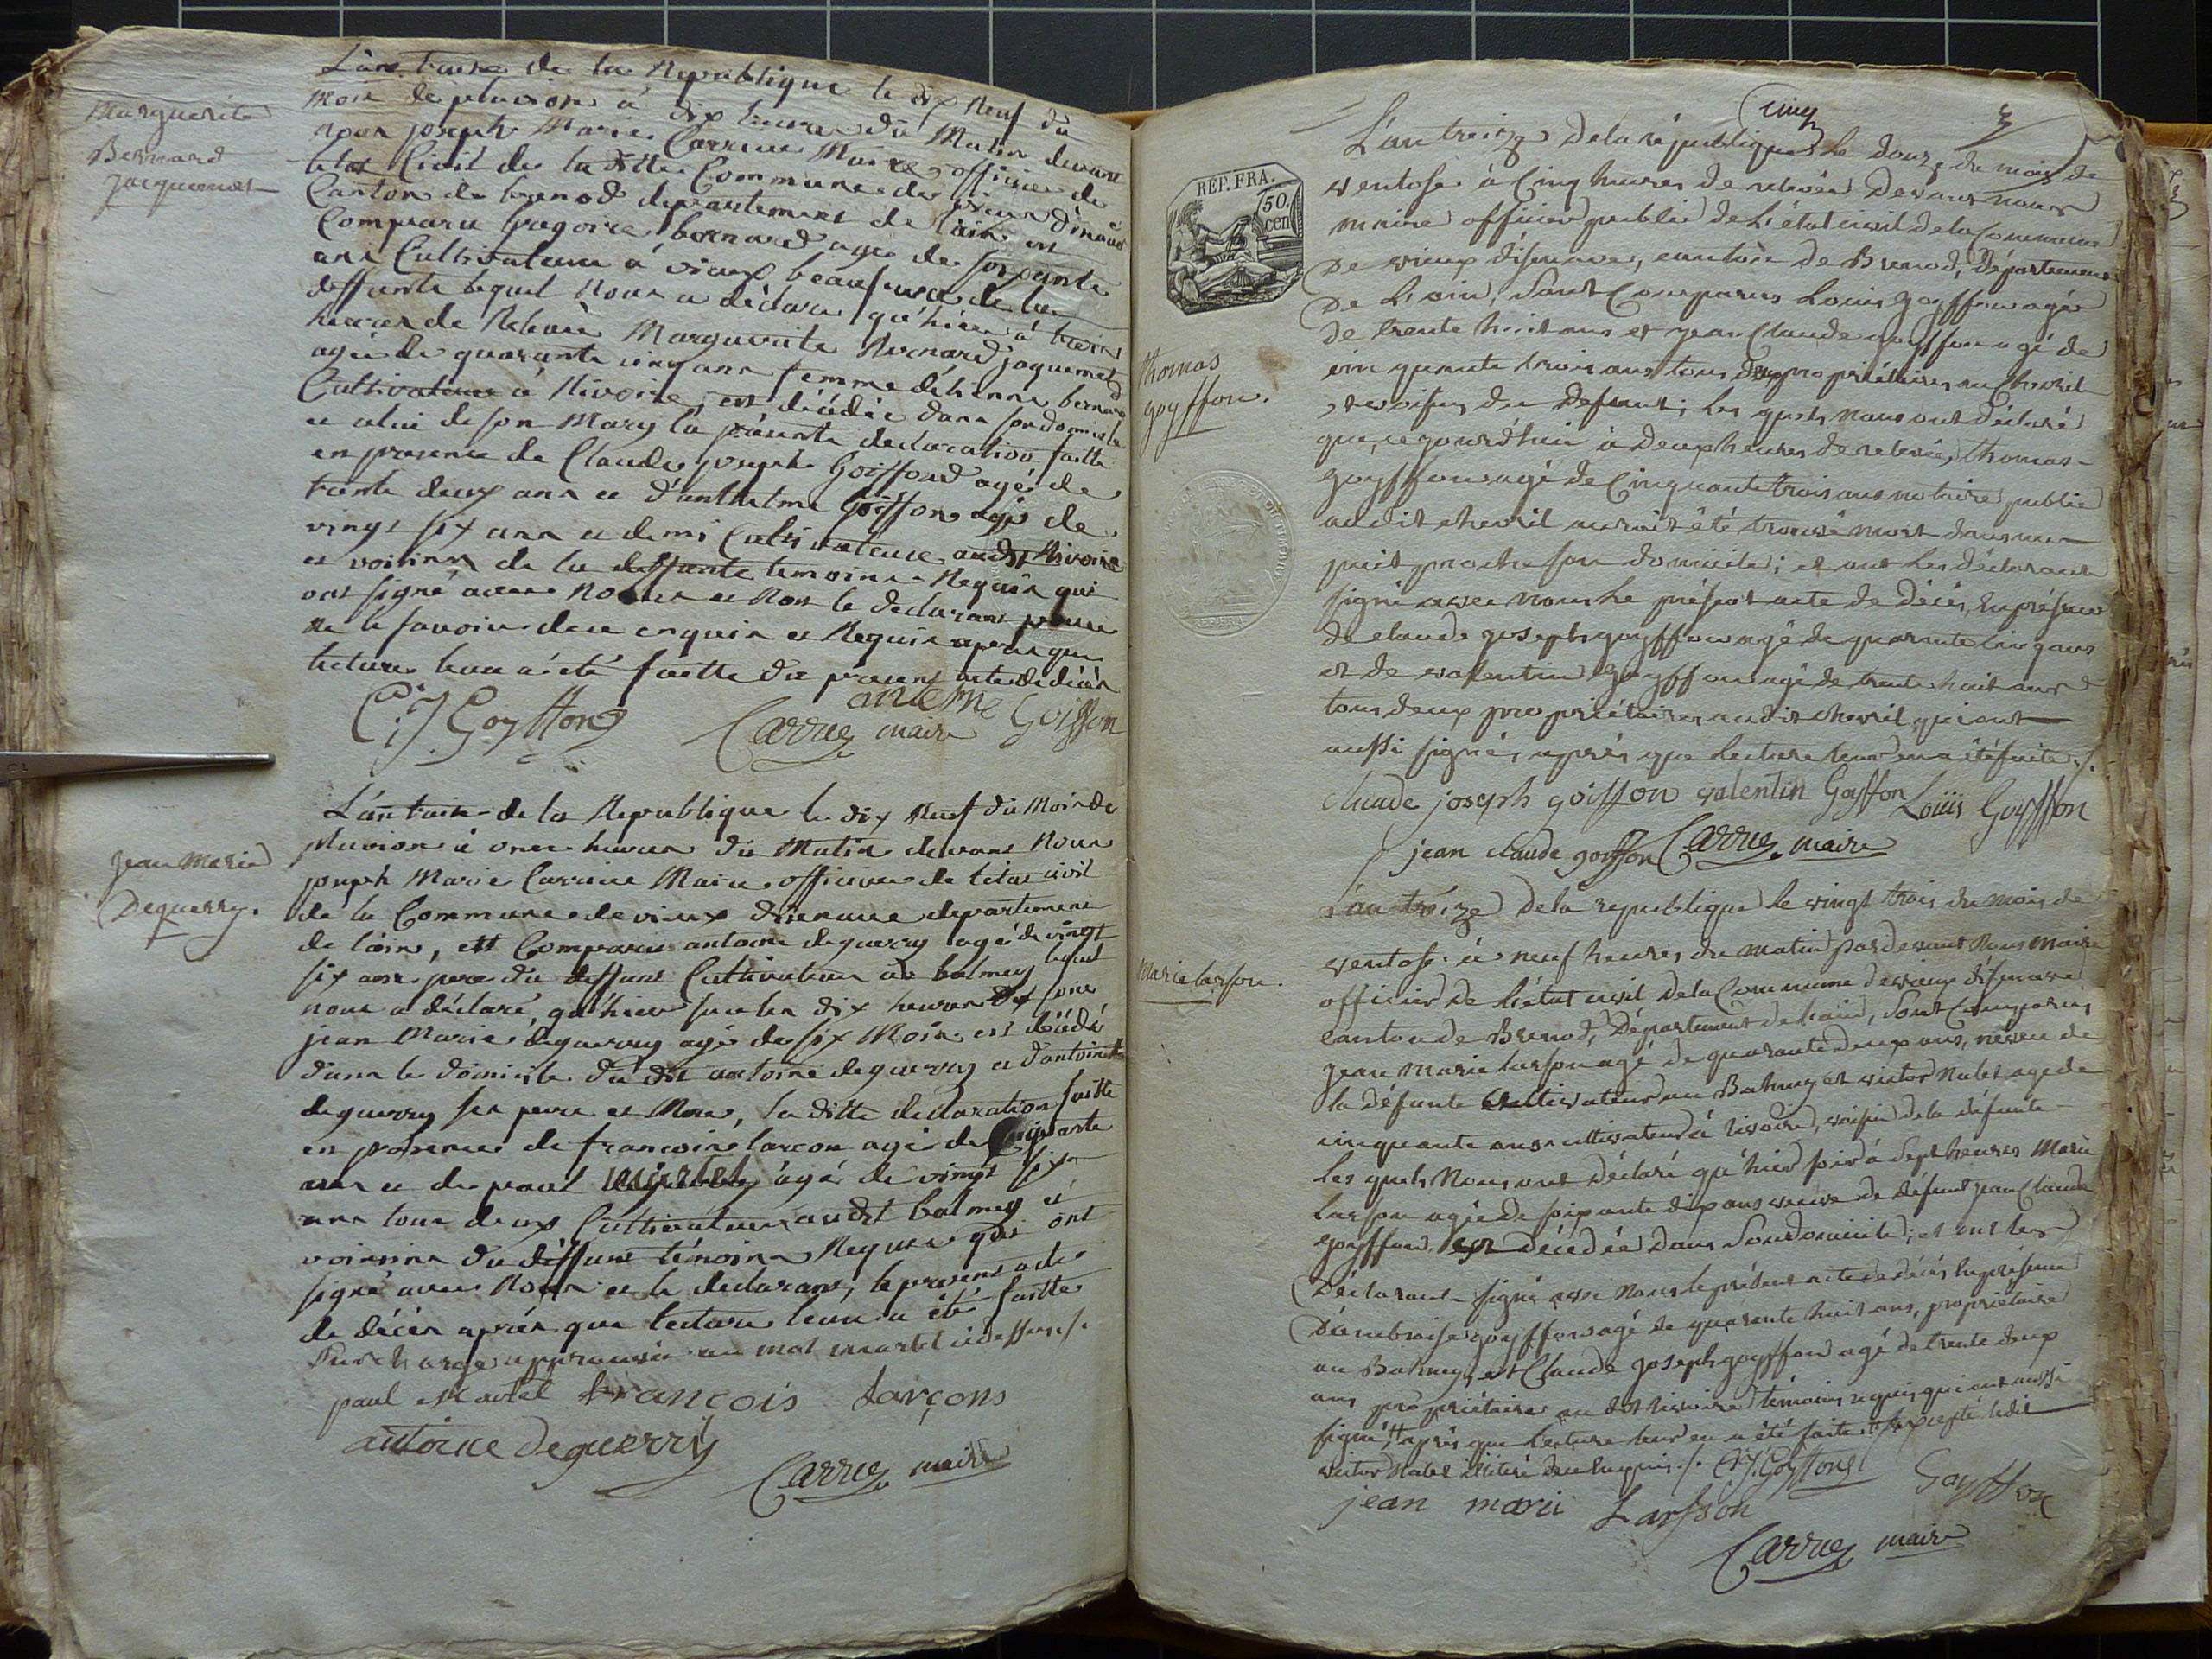 Marguerite
Bernard
jacquemet
L'an treize de la Republique le dix Neuf du
Mois de pluviose à dix heures du Matin devant
nous joseph Marie Carrier Maire officier de
letat Civil de la ditte Commune de vieux d'izenave
Canton de brenod departement de l'ain est
Comparu gregoire bernard agé de soixante
ans Cultivateur à vieux beaufrere de la
deffunte lequel Nous a déclaré qu'hier à trois
heures de Relevée Marguerite Bernard jaquemet
agée de quarante cinq ans femme détienne bernard
Cultivateur à Rivoire, est décédée dans son domicile
et celui de son Mary la présente declaration faitte
en presence de Claude joseph Goiffond agé de
trente deux ans et d'anthelme Goiffon agé de
vingt six ans et demi Cultivateurs audit Rivoire
et voisins de la deffunte temoins Requis qui
ont signé avec Nous et Non le declarant pour
ne le savoir de ce enquis et Requis après que
lecture leur a été faitte du présent acte de décès
C. J. Goyffond Carrier maire anteme Goiffon
jean Marie
Deguerry.
L'an treize de la Republique le dix Neuf du Mois de
pluviose à onze heures du Matin devant Nous
joseph Marie Carrier Maire officier de letat civil
de la Commune de vieux dizenave departement
de lain, est Comparu antoine deguerry agé de vingt
six ans pere du deffunt Cultivateur au balmey lequel
nous a déclaré, qu'hier sur les dix heures du soir
jean Marie deguerry agé de six Mois est décédé
dans le domicile du dit antoine deguerry et d'antoinette
deguerry ses pere et Mere, la ditte declaration faitte
en présence de francois larcon agé de cinquante
ans et de paul martel agé de vingt six
ans tous deux Cultivateurs audit balmey et
voisins du deffunt témoins Requis qui ont
signé avec Nous et le declarant, le present acte
de décès après que lecture leur a été faitte
Surcharge approuvée au mot martel cidessus ./.
paul Martel francois Larçons
antoine Deguerry
Carrier maire
cinq
REP. FRA.
50.
cen
thomas
goyffon.
L'an treize De la république le douze du mois de
ventose à Cinq heures de relevée Devant nous
maire officier public de L'état civil de la Commune
De vieux disenave, canton de Brenod, Département
De L'ain, Sont Comparus Louis goyffon agé
de trente huit ans et jean Claude goyffon agé de
cinquante trois ans tous deux propriétaires au Chevril
et voisins du Defunt; les quels nous ont déclaré
que, ce jourd'hui à deux heures de relevée, thomas
goyffon agé de Cinquante trois ans notaire public
audit chevril auroit été trouvé mort dans un
puit proche son domicile; et ont les déclarants
signé avec nous le présent acte de décès, En présence
de claude joseph goyffon agé de quarante cinq ans
et de valentin goyffon agé de trente huit ans
tous deux propriétaires audit chevril qui ont
aussi signé, après que lecture leur en a été faite ./.
claude joseph goiffon valentin Goyffon Louis Goyffon
jean claude goiffon Carrier maire
Marie larson.
L'an treize De la république le vingt trois du mois de
ventose à neuf heures du matin par devant Nous maire
officier de L'état civil De la Commune de vieux disenave
canton de Brenod, Département de L'ain, Sont Comparus
jean marie larson agé de quarante deux ans, neveu de
la défunte Cultivateur au Balmey et victor Nalet agé de
cinquante ans cultivateur à rivoire, voisin de la défunte
Les quels Nous ont déclaré qu'hier soir à Sept heures Marie
larson agée de soixante dix ans veuve de défunt jean Claude
goyffon est décédée Dans Son domicile; et ont les
Déclarants signé avec Nous le présent acte de décès, En présence
D'ambroise goyffon agé de quarante huit ans, propriétaire
au Balmey, et Claude joseph goyffon agé de trente deux
ans propriétaire au dit rivoire témoins requis qui ont aussi
signé, après que lecture leur en a été faite, excepté ledit
victor Nalet illitéré de ce Enquis ./. C. J. Goyffond
jean marie Larsson Goyffon
Carrier maire